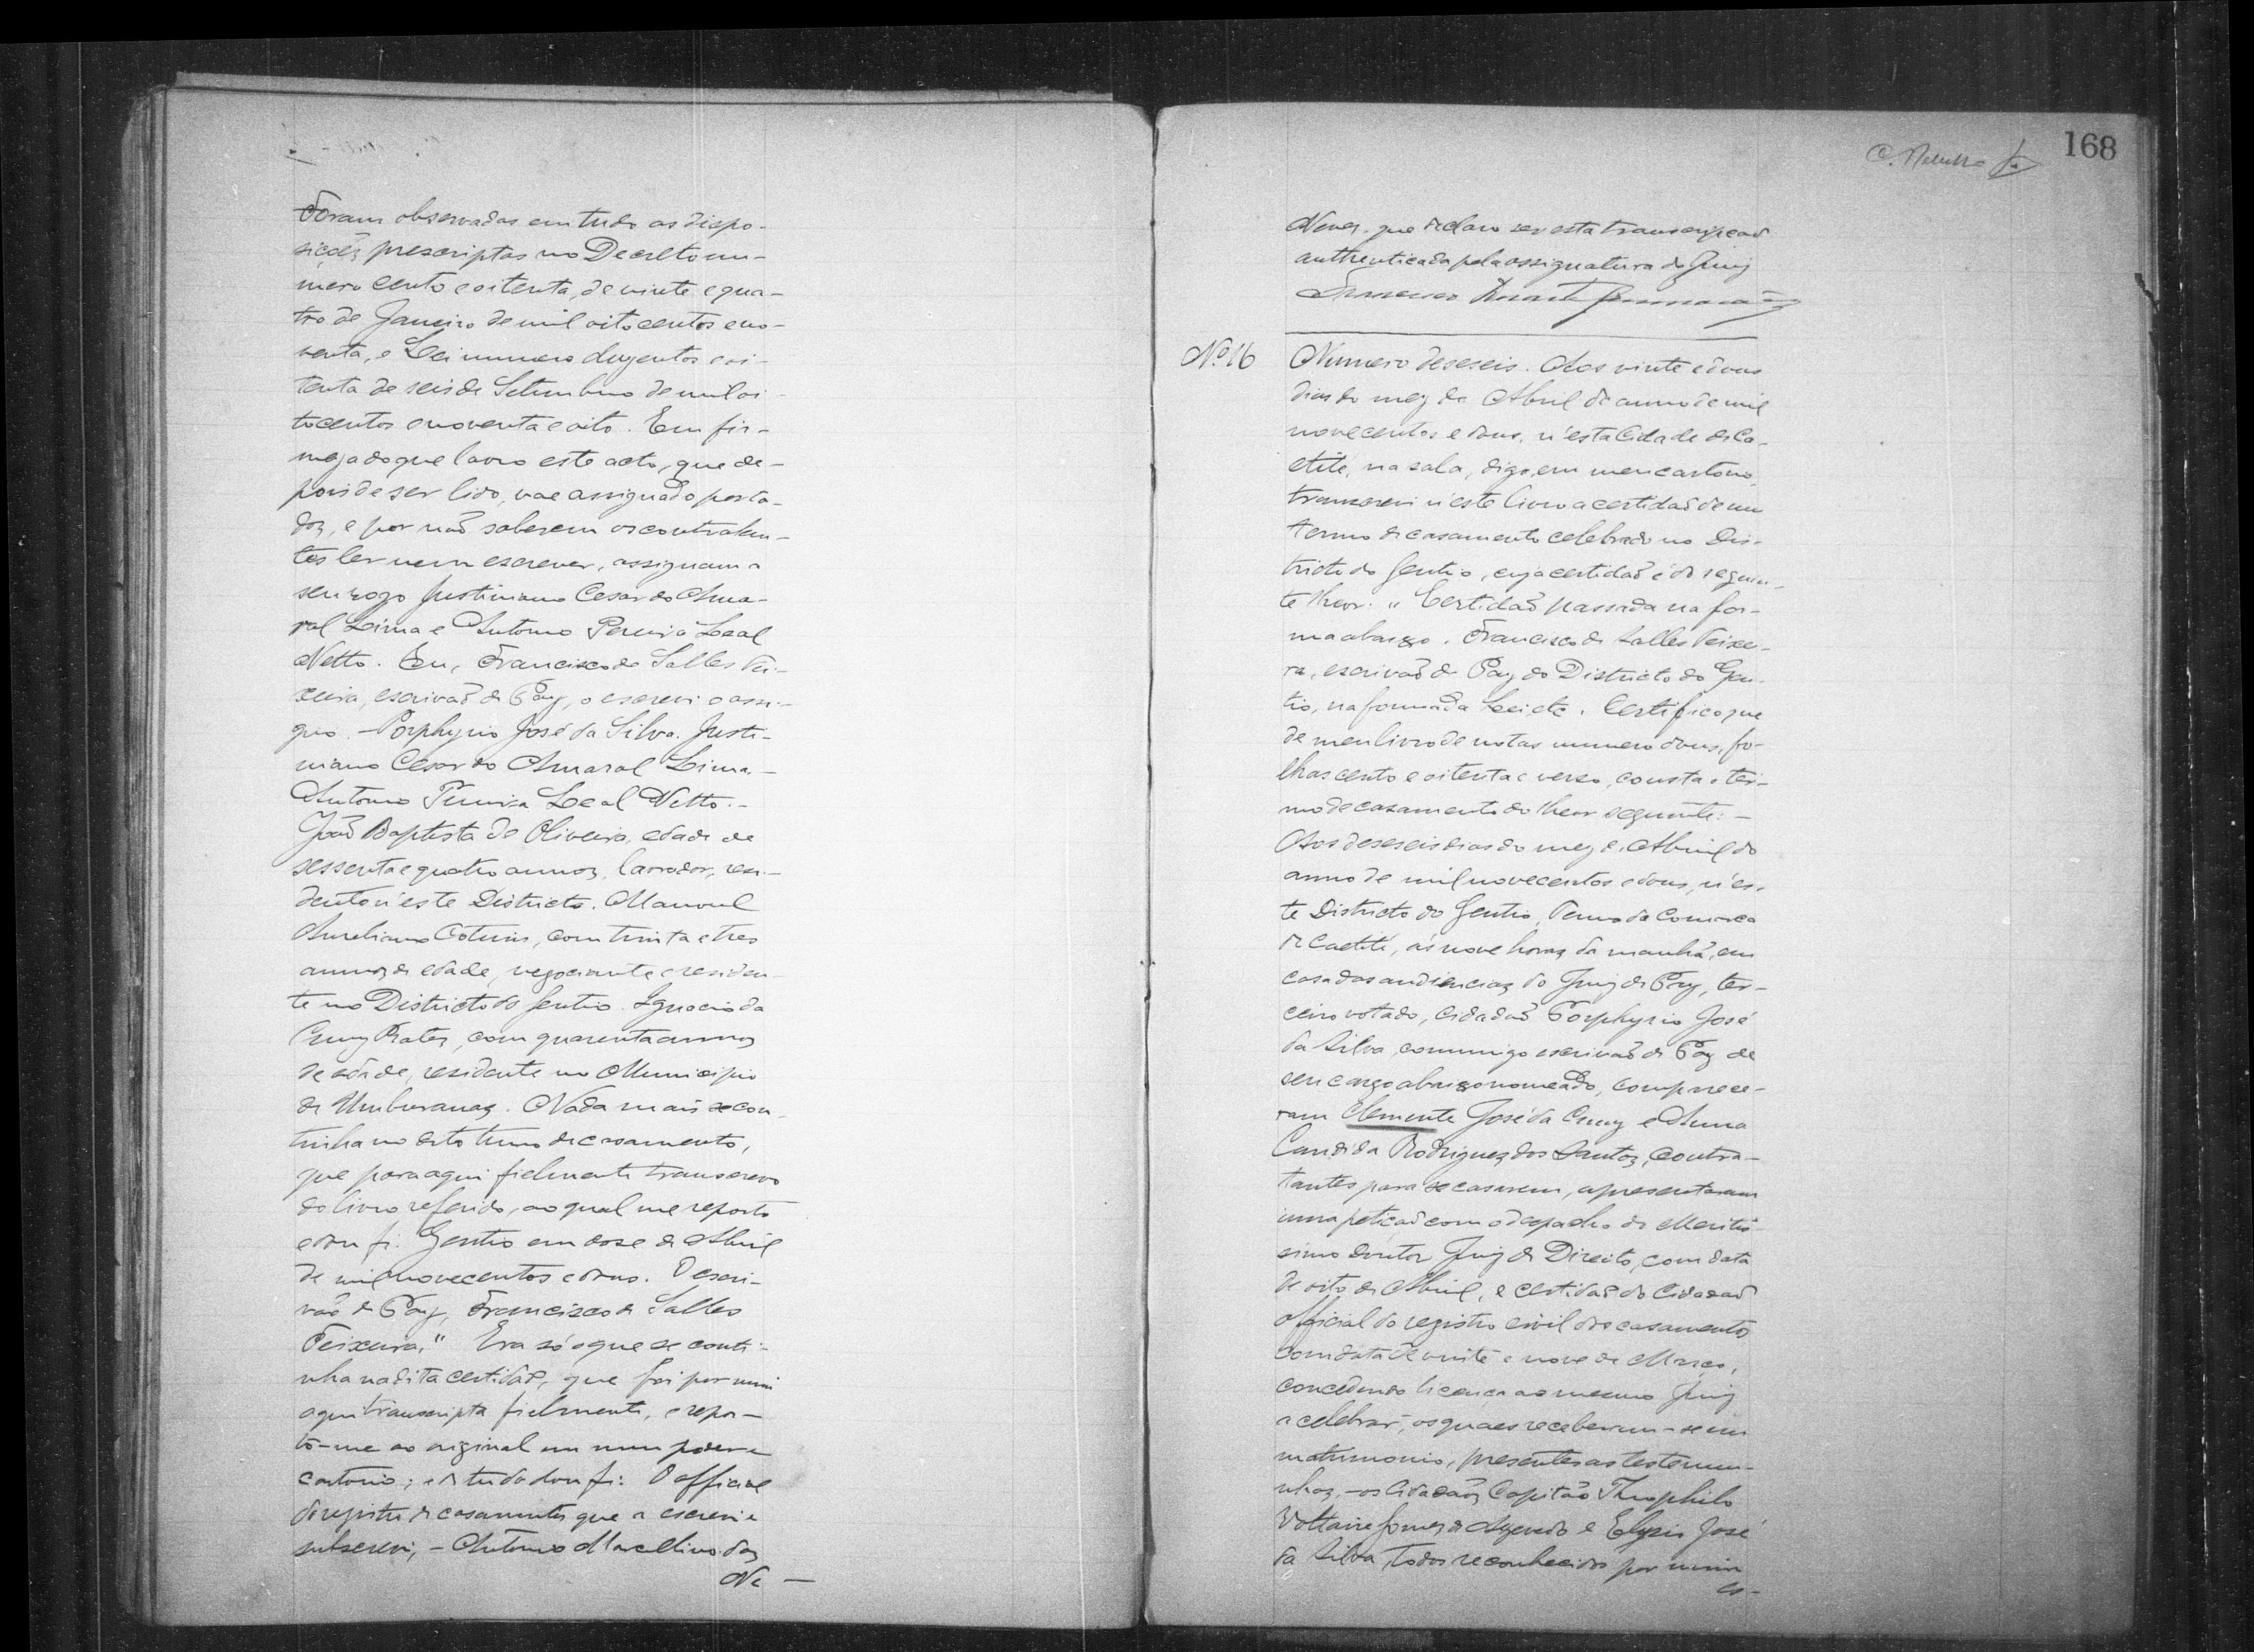 Foram observadas em tudo as dispo-
sições prescriptas no Decreto nu-
mero cento e oitenta, de vinte e qua-
tro de Janeiro de mil oitocentos e no-
venta, e Lei numero duzentos e oi-
tenta de seis de Setembro de mil oi-
tocentos e noventa e oito. Em fir-
meza do que lavro este acto, que de-
pois de ser lido, vae assignado por to-
dos, e por não saberem os contrahen-
tes ler nem escrever, assignam a
seu rogo Justiniano Cesar do Ama-
ral Lima e Antonio Pereira Leal
Netto. Eu, Francisco de Salles Tei-
xeira, escrivão de Paz, o escrevi e assi-
gno. - Porphyrio José da Silva. Justi-
niano Cesar do Amaral Lima. -
Antonio Pereira Leal Netto. -
João Baptista de Oliveira, edade de
sessenta e quatro annos, lavrador, resi-
dente n'este Districto. Manoel
Aureliano Cotrim, com trinta e tres
annos de edade, negociante e residen-
te no Districto do Gentio. Ignacio da
Cruz Prates, com quarenta annos
de edade, residente no Municipio
de Umburanas. Nada mais se con-
tinha no dito termo de casamento,
que para aqui fielmente transcrevo
do livro referido, ao qual me reporto
e dou fé. Gentio em doze de Abril
de mil novecentos e dous. O escri-
vão de Paz, Francisco de Salles
Teixeira." Era só o que se conti-
nha na dita certidão, que foi por mim
aqui transcripta fielmente, e repor-
to-me ao original em meu poder e
cartorio; e de tudo dou fé. O official
do registro de casamentos que a escrevi e
subscrevi, - Antonio Marcellino das
Ne -
168
Neves. que declaro ser esta transcripção
authenticada pela assignatura do Juiz
Nº 16
Numero deseseis. Aos vinte e dous
dias do mez de Abril do anno de mil
novecentos e dous, n'esta Cidade de Ca-
etité, na sala, digo, em meu cartorio,
transcrevi n'este livro a certidão de um
termo de casamento celebrado no Dis-
tricto do Gentio, cuja certidão é do seguin-
te theor: "Certidão passada na for-
ma abaixo. Francisco de Salles Teixei-
ra, escrivão de Paz do Districto do Gen-
tio, na forma da Lei etc. Certifico que
de meu livro de notas numero dous, fo-
lhas cento e oitenta e verso, consta o ter-
mo de casamento do theor seguinte: -
Aos deseseis dias do mez de Abril do
anno de mil novecentos e dous, n'es-
te Districto do Gentio, Termo da Comarca
de Caetité, ás nove horas da manhã, em
casa das audiencias do Juiz de Paz, ter-
ceiro votado, cidadão Porphyrio José
da Silva, commigo escrivão de Paz de
seu cargo abaixo nomeado, comparece-
ram Clemente José da Cruz e Anna
Candida Rodrigues dos Santos, contra-
tantes para se casarem, apresentaram
uma petição com o despacho do Meritis-
simo doutor Juiz de Direito, com data
de oito de Abril, e certidão do Cidadão
official do registro civil dos casamentos
com data de vinte e nove de Março,
concedendo licença ao mesmo Juiz
a celebrar, os quaes receberam-se em
matrimonio, presentes as testemu-
nhas, - os Cidadãos Capitão Theophilo
Voltaire Gomes de Azevedo e Elysio José
da Silva, todos reconhecidos por mim
es-